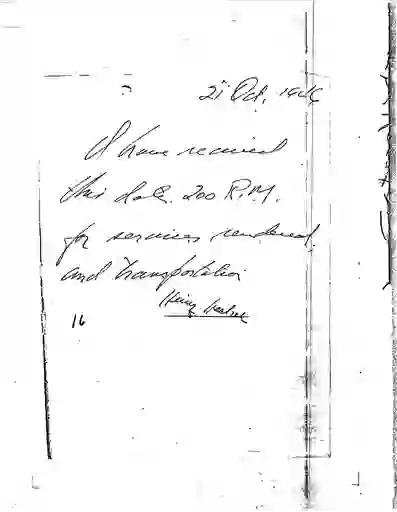 21 Oct. 1946
I have received
this date 200 R.M.
for services rendered
and transportation
16